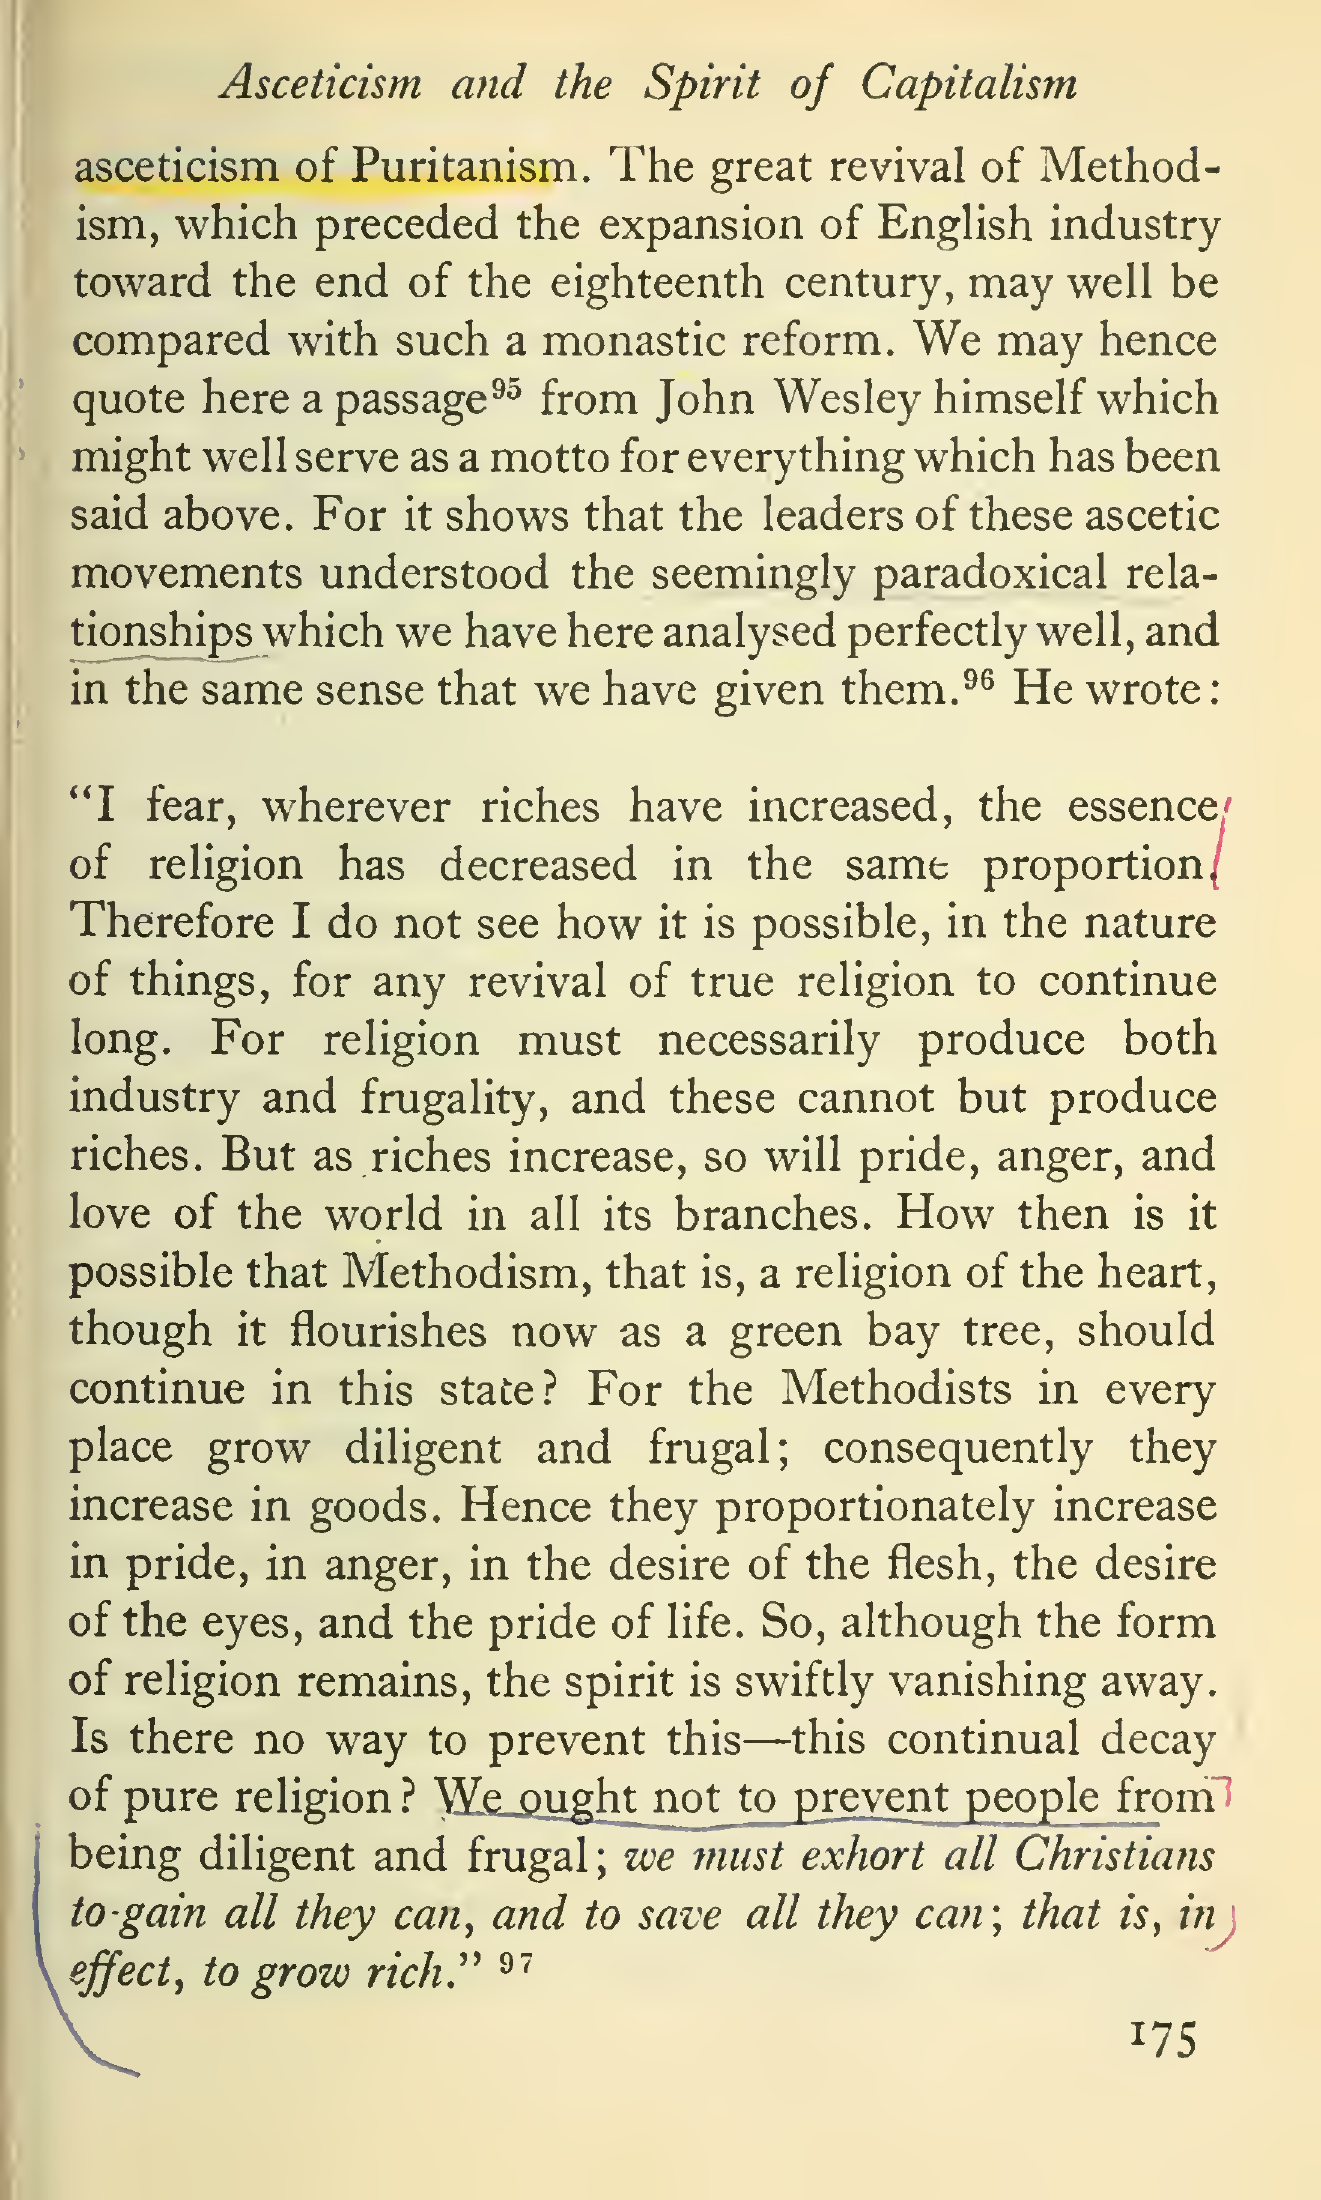 Asceticism and the Spirit of Capitalism
asceticism of Puritanism. The great revival of Method-
ism, which preceded the expansion of English industry
toward the end of the eighteenth century, may well be
compared with such a monastic reform. We may hence
quote here a passage⁹⁵ from John Wesley himself which
might well serve as a motto for everything which has been
said above. For it shows that the leaders of these ascetic
movements understood the seemingly paradoxical rela-
tionships which we have here analysed perfectly well, and
in the same sense that we have given them.⁹⁶ He wrote:
“I fear, wherever riches have increased, the essence
of religion has decreased in the same proportion.
Therefore I do not see how it is possible, in the nature
of things, for any revival of true religion to continue
long. For religion must necessarily produce both
industry and frugality, and these cannot but produce
riches. But as riches increase, so will pride, anger, and
love of the world in all its branches. How then is it
possible that Methodism, that is, a religion of the heart,
though it flourishes now as a green bay tree, should
continue in this state? For the Methodists in every
place grow diligent and frugal; consequently they
increase in goods. Hence they proportionately increase
in pride, in anger, in the desire of the flesh, the desire
of the eyes, and the pride of life. So, although the form
of religion remains, the spirit is swiftly vanishing away.
Is there no way to prevent this—this continual decay
of pure religion? We ought not to prevent people from
being diligent and frugal; we must exhort all Christians
to gain all they can, and to save all they can; that is, in
effect, to grow rich.” ⁹⁷
175